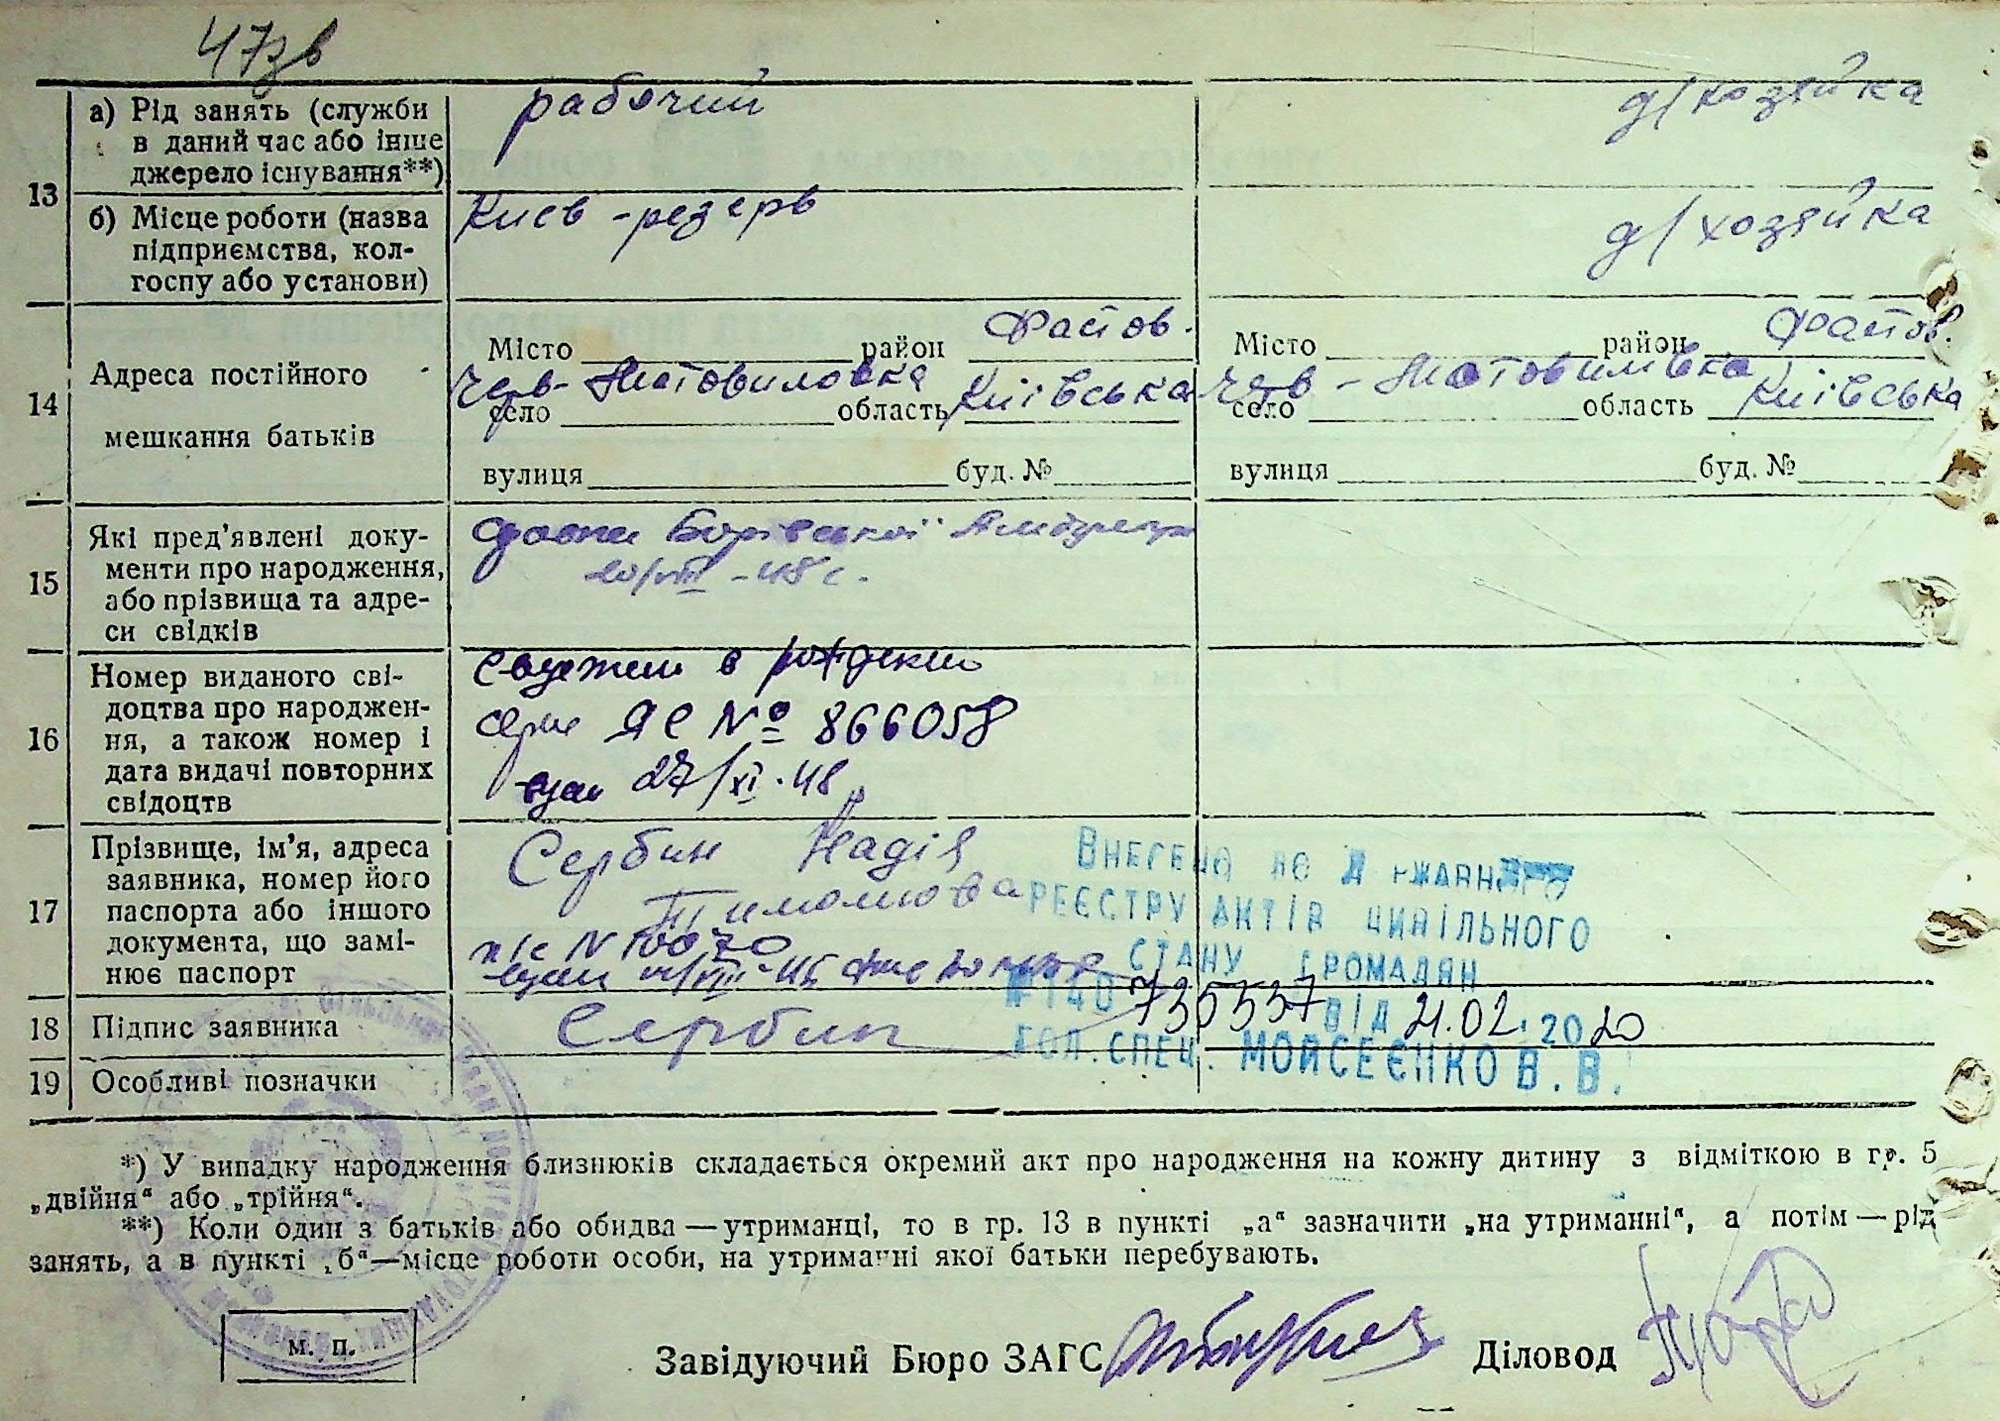 47зв
13
а) Рід занять (служби
в даний час або інше
джерело існування**)
рабочий
д/хозяйка
б) Місце роботи (назва
підприємства, кол-
госпу або установи)
Киев-резерв
д/хозяйка
14
Адреса постійного
мешкання батьків
Місто район Фастов.
Черв- Мотовиловка
село область Київська
вулиця буд. №
Місто район Фастов.
Черв - Мотовилівка
село область Київська
вулиця буд. №
15
Які пред’явлені доку-
менти про народження,
або прізвища та адре-
си свідків
Борівської
VIII-48 г.
16
Номер виданого сві-
доцтва про народжен-
ня, а також номер і
дата видачі повторних
свідоцтв
о рождении
серие ЯС № 866058
27/XI-48
17
Прізвище, ім’я, адреса
заявника, номер його
паспорта або іншого
документа, що замі-
нює паспорт
Сербин Надія
п/с N 10070
Внесено до Державного
реєстру актів цивільного
стану громадян
№140 735537 від 21.02.2020
гол.спец. Мойсеєнко В.В.
18
Підпис заявника
Сербин
19
Особливі позначки
*) У випадку народження близнюків складається окремий акт про народження на кожну дитину з відміткою в гр. 5
„двійня“ або „трійня“.
**) Коли один з батьків або обидва — утриманці, то в гр. 13 в пункті „а“ зазначити „на утриманні“, а потім — рід
занять, а в пункті „б“—місце роботи особи, на утриманні якої батьки перебувають.
м. п.
Завідуючий Бюро ЗАГС
Діловод